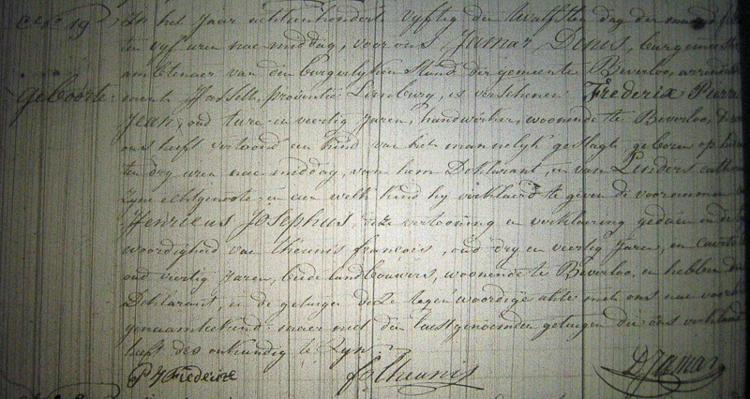 In het Jaar achttienhonderd vyftig den twalfsten dag der maand
ten vyf uren nae middag, voor ons Jamar Denis, burgemeester
ambtenaer van den burgerlyken Stand der gemeente Beverloo,
Geboorte
Hasselt, provintie Limburg, is verschenen Frederix Pierre
Jean, oud twee en veertig Jaren, handwerker, woonende te Beverloo,
ons heeft vertoond een kind van het mannelyk geslagt, geboren op
ten dry uren nae middag, van hem Deklarant, en van Linders
zyne echtgenoote en aen welk kind hy verklaerd te geven de voornamen
Henricus Josephus, deze vertooning en verklaering gedaen in de
woordigheid van theunis françois, oud dry en veertig Jaren, en
oud veertig Jaren, beide landbouwers, woonende te Beverloo, en hebben de
Deklarant, en de getuigen deze tegenwoordige akte met ons nae
genaamteekend: maer met den laestgenoemden getuigen die ons verklaerd
heeft des onkundig te Zyn
P J Frederixe
f theunis
D Jamar